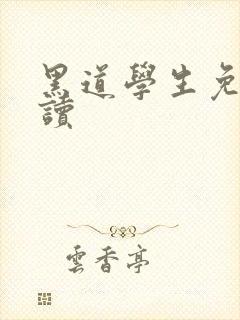 黑道學生免
讀
雲香亭